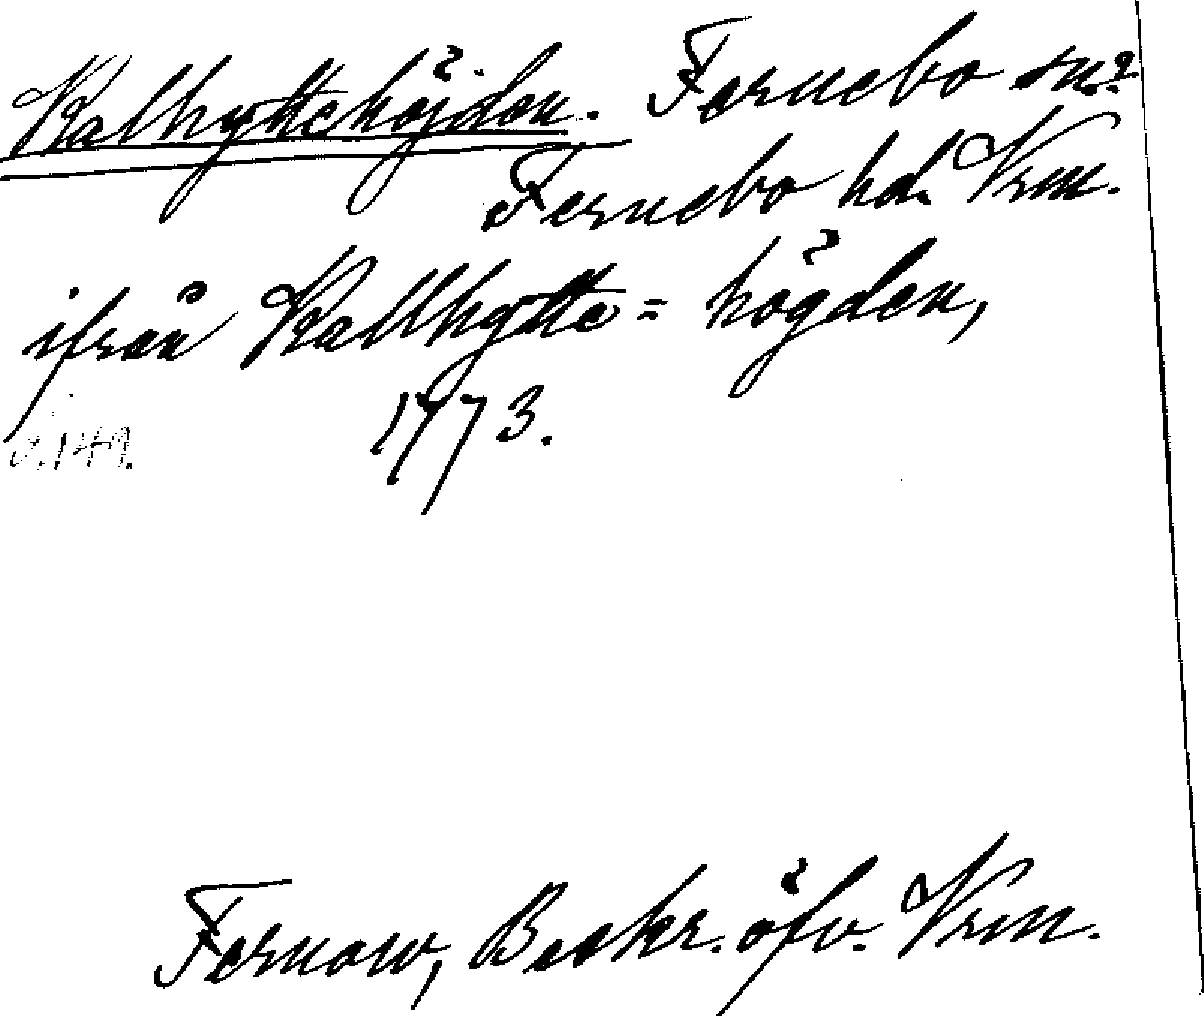 Kalhyttehöjden. Fernebo sn?
Fernebo hd. Vrm.
ifrån Kallhytte= högden,
1773.
s. 149.
Fernow, Beskr. öfv. Vrm.